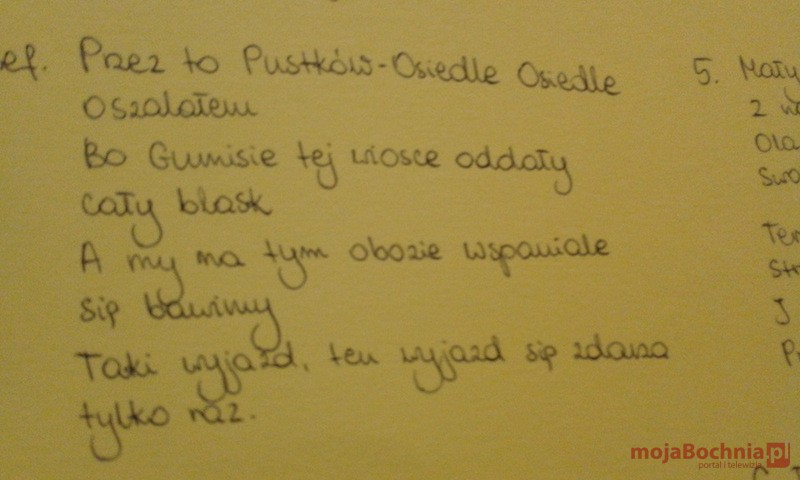 ef. Przez to Pustków-Osiedle Osiedle
oszalałem
Bo Gumisie tej wiosce oddały
cały blask
A my na tym obozie wspaniale
się bawimy
Taki wyjazd, ten wyjazd się zdarza
tylko raz.
5. Mały
z w
Ola
Swo
Ter
Str
J
Pr
mojaBochnia.pl
portal i telewizja